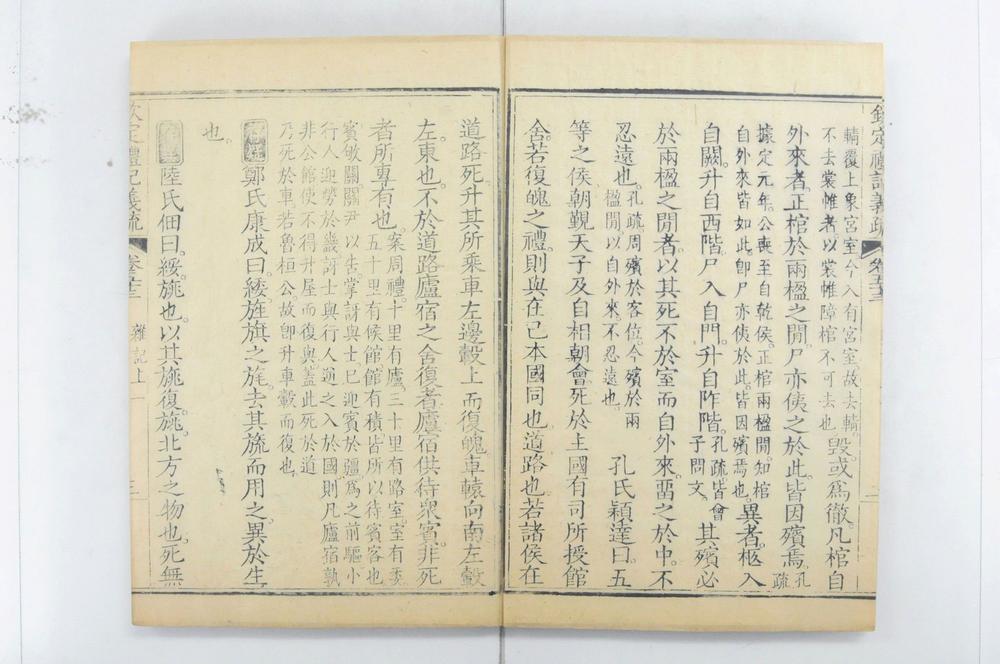 欽定禮記義疏 卷五十三 二
輤覆上象宮室今入有宮室故去輤
不去裳帷者以裳帷障棺不可去也
毀或爲徹凡棺自
外來者正棺於兩楹之閒尸亦侇之於此皆因殯焉
孔
疏
據定元年公喪至自乾侯正棺兩楹閒知棺
自外來皆如此卽尸亦侇於此皆因殯焉也
異者柩入
自闕升自西階尸入自門升自阼階
孔疏皆曾
子問文
其殯必
於兩楹之閒者以其死不於室而自外來畱之於中不
忍遠也
孔疏周殯於客位今殯於兩
楹閒以自外來不忍遠也
孔氏穎達曰五
等之侯朝覲天子及自相朝會死於主國有司所授館
舍若復魄之禮則與在己本國同也道路也若諸侯在
道路死升其所乘車左邊轂上而復魄車轅向南左轂
左東也不於道路廬宿之舍復者廬宿供待衆賓非死
者所專有也
案周禮十里有廬三十里有路室室有委
五十里有候館館有積皆所以待賓客也
賓敂關關尹以告掌訝與士已迎賓於疆爲之前驅小
行人迎勞於畿訝士與行人逆之入於國則凡廬宿孰
非公館使不得升屋而復與蓋此死於道
乃死於車若魯桓公故卽升車轂而復也
鄭氏康成曰綏旌旗之旄去其旒而用之異於生
也
陸氏佃曰綏旐也以其旐復旐北方之物也死無
欽定禮記義疏 卷五十三 雜記上 三